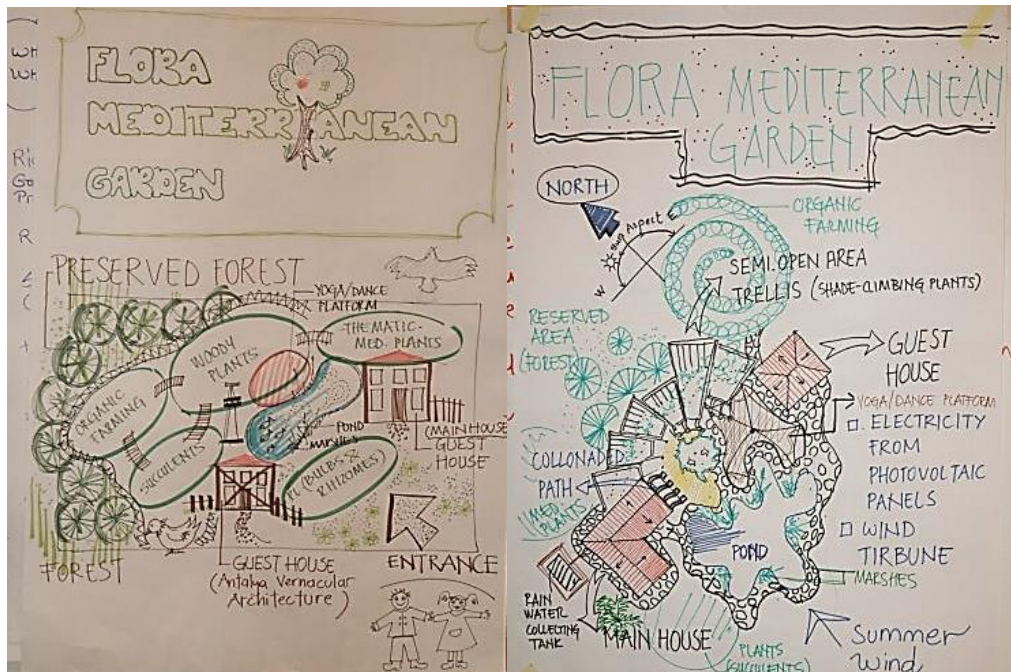 FLORA
MEDITERRANEAN
GARDEN
PRESERVED FOREST
YOGA/DANCE
PLATFORM
THEMATIC
MED. PLANTS
WOODY
PLANTS
ORGANIC
FARMING
SUCCULENTS
POND
MARSHES
(BULBS &
RHIZOMES)
(MAIN HOUSE
GUEST
HOUSE
FOREST
GUEST HOUSE
(Antalya Vernacular
Architecture)
ENTRANCE
FLORA MEDITERRANEAN
GARDEN
NORTH
Sun Aspect
E
W
ORGANIC
FARMING
SEMI.OPEN AREA
TRELLIS (SHADE-CLIMBING PLANTS)
RESERVED
AREA
(FOREST)
GUEST
HOUSE
YOGA/DANCE PLATFORM
ELECTRICITY
FROM
PHOTOVOLTAIC
PANELS
WIND
TIRBUNE
COLLONADED
PATH
MED.
PLANTS
POND
MARSHES
RAIN
WATER
COLLECTING
TANK
MAIN HOUSE
PLANTS
(SUCCULENTS)
Summer
Wind